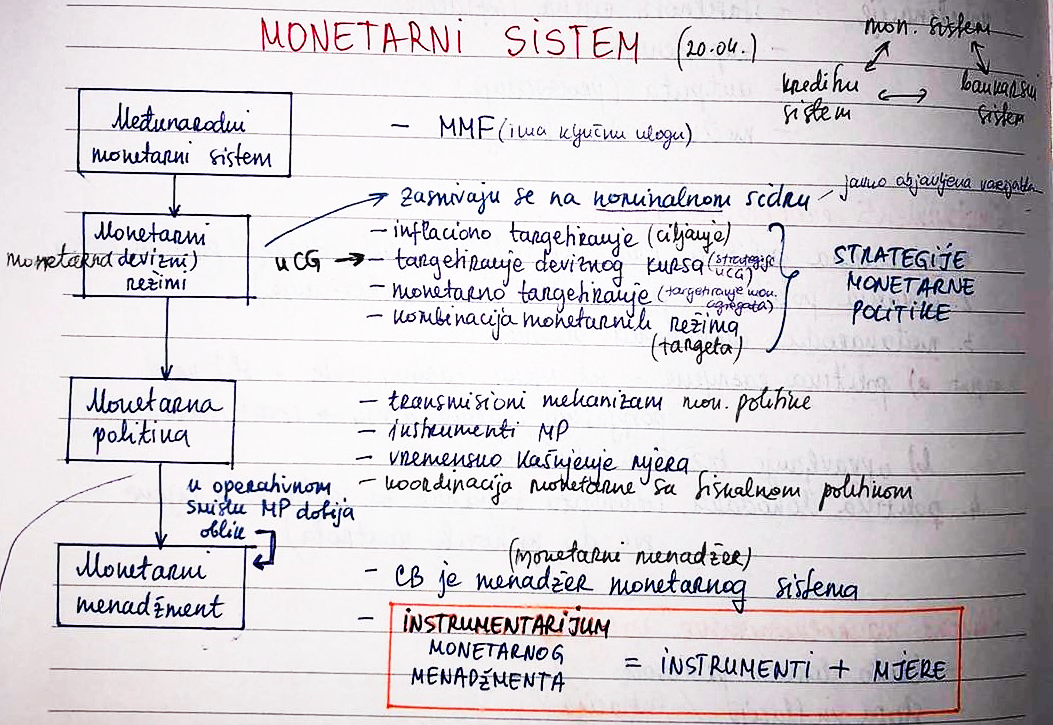 MONETARNI SISTEM (20.04.)
mon. sistem
kreditni sistem
bankarski sistem
Međunarodni
monetarni sistem
- MMF (ima ključnu ulogu)
zasnivaju se na nominalnom sidru
javno objavljena varijabla
Monetarni
monetarno devizni)
režimi
u CG
- inflaciono targetiranje (ciljanje)
- targetiranje deviznog kursa (strategija u CG)
- monetarno targetiranje (targetiranje mon. agregata)
- kombinacija monetarnih režima
(targeta)
STRATEGIJE
MONETARNE
POLITIKE
Monetarna
politika
- transmisioni mehanizam mon. politike
- instrumenti MP
- vremensko kašnjenje mjera
- koordinacija monetarne sa fiskalnom politikom
u operativnom
smislu MP dobija
oblik
Monetarni
menadžment
(monetarni menadžer)
- CB je menadžer monetarnog sistema
- INSTRUMENTARIJUM
MONETARNOG
MENADŽMENTA
= INSTRUMENTI + MJERE